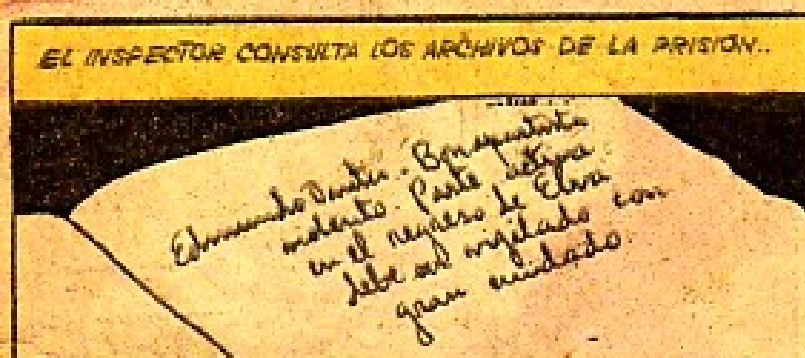 EL INSPECTOR CONSULTA LOS ARCHIVOS DE LA PRISION..
Edmundo Dantés. Bonapartista
violento. Parte activa
en el regreso de Elva
debe ser vigilado con
gran cuidado.